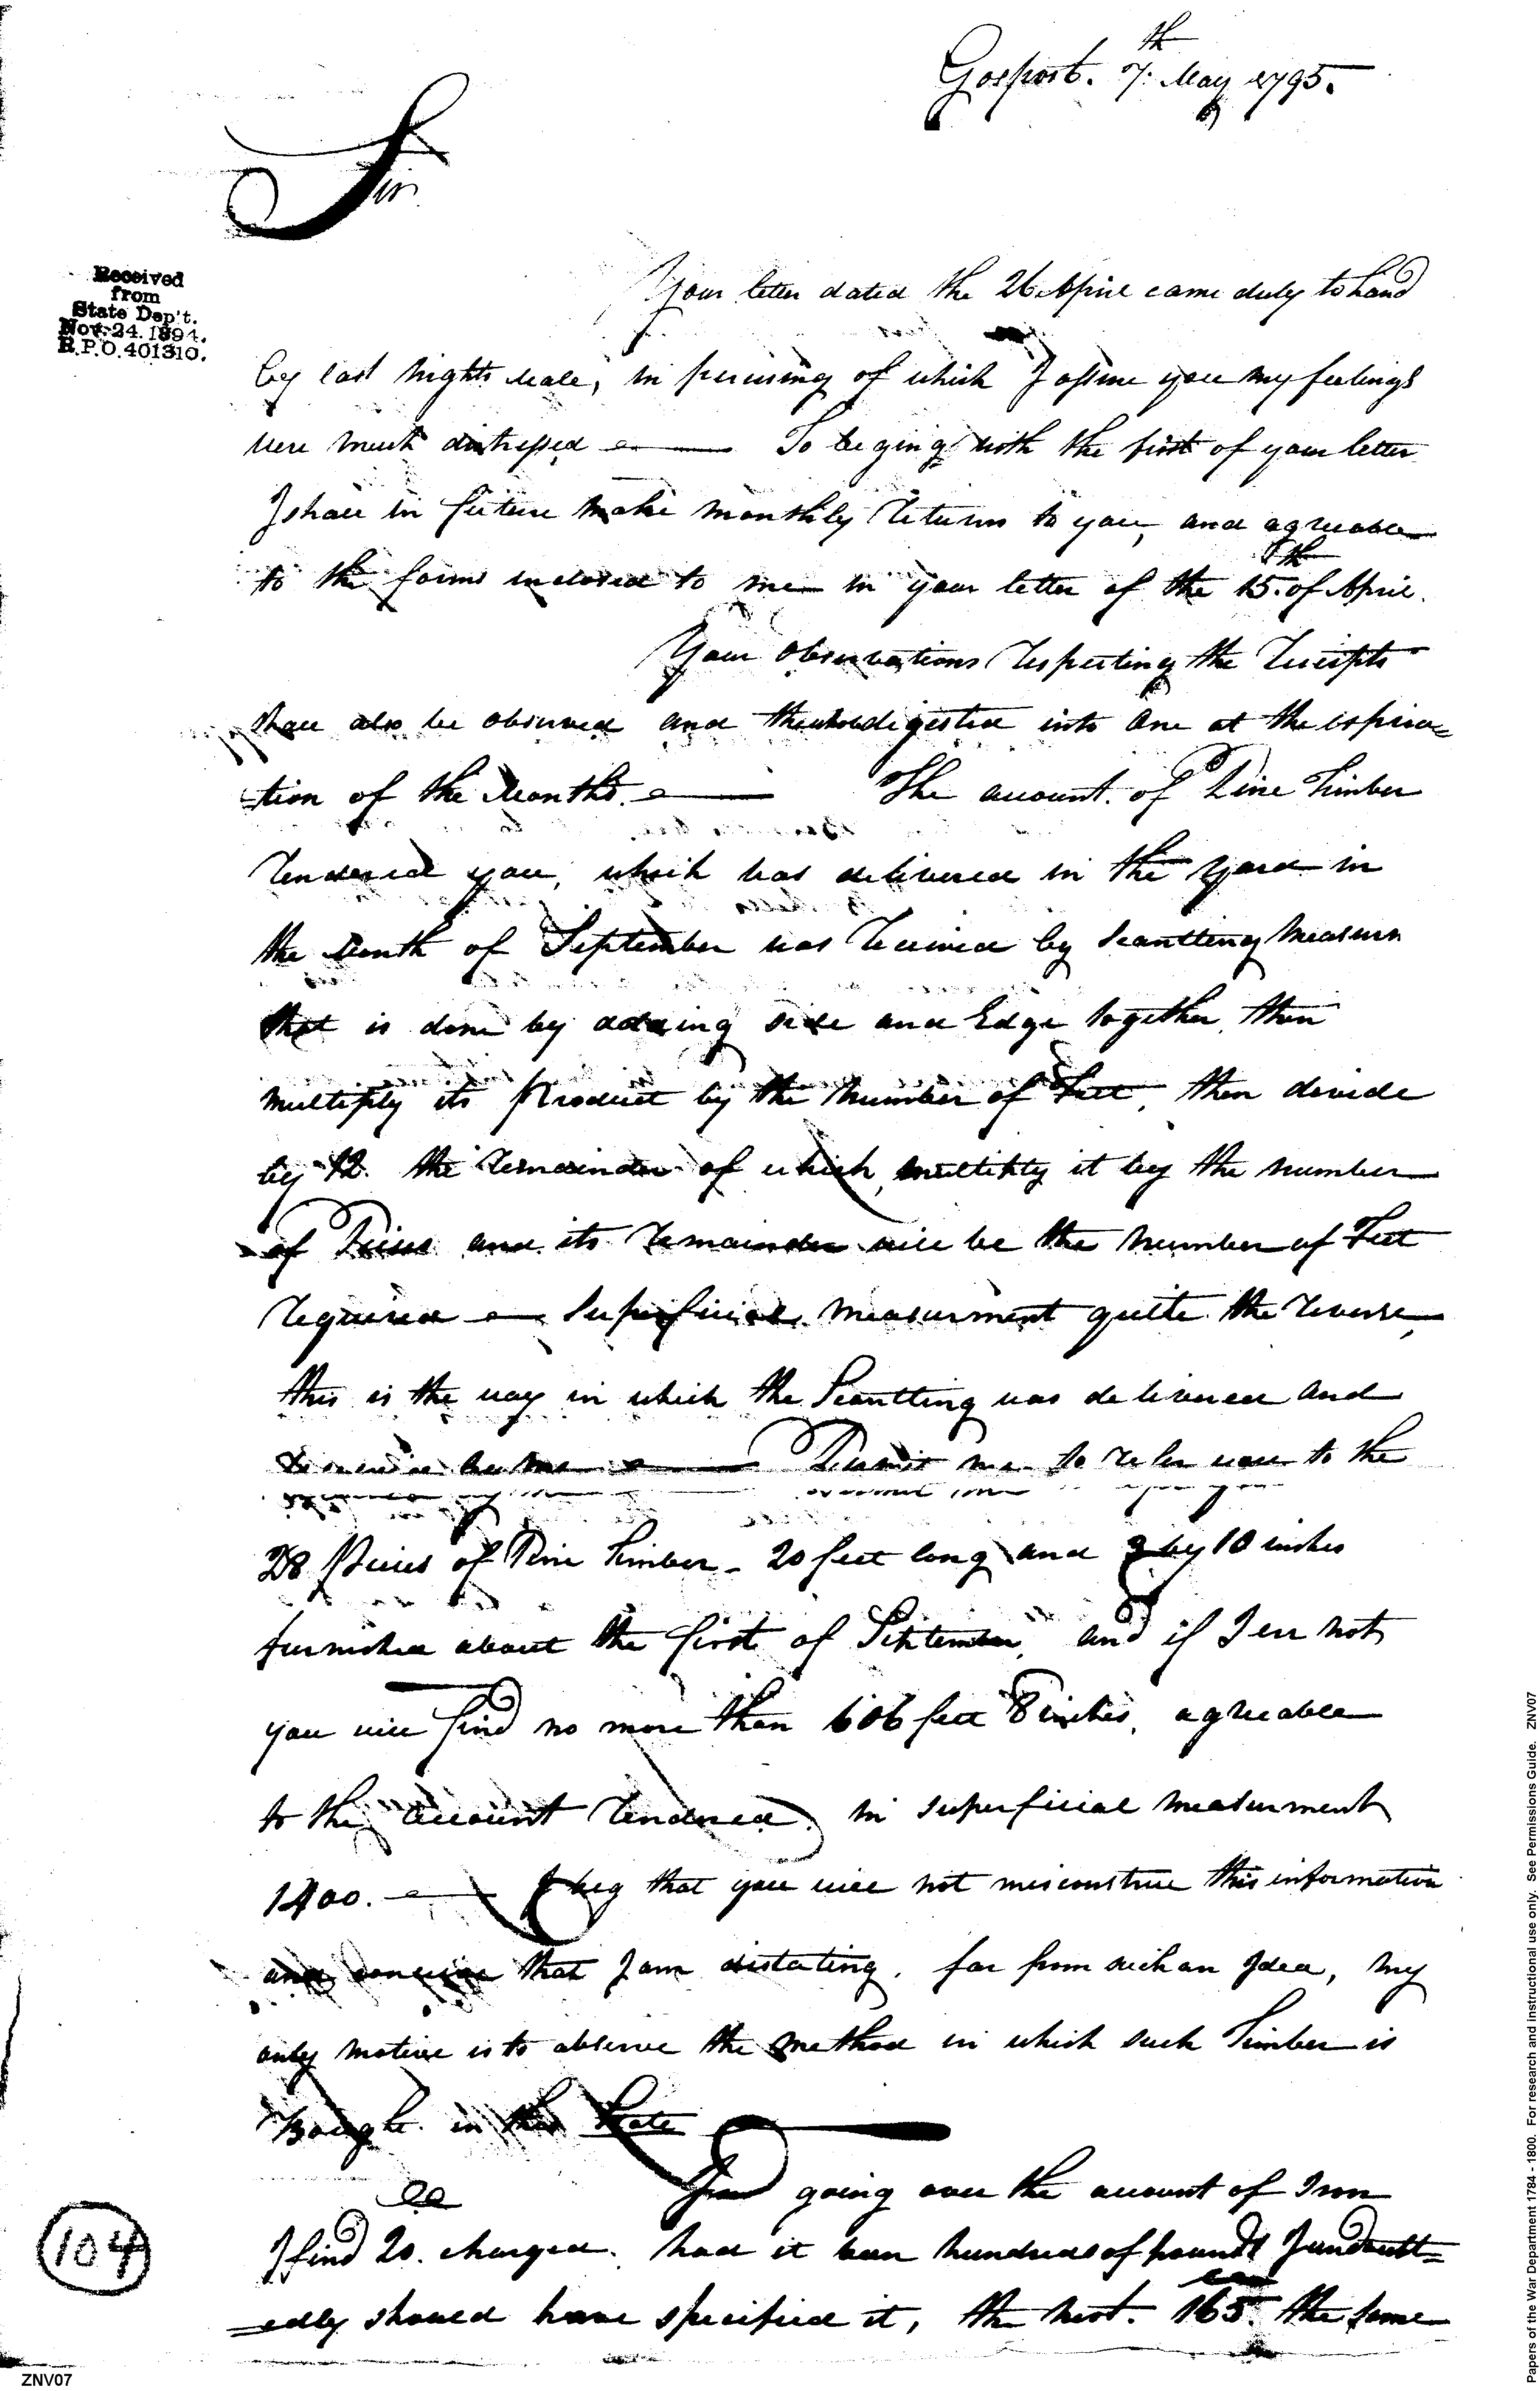 Gosport. 7th May 1795.
Sir
Received
from
State Dep't.
Nov. 24. 1894.
R.P.O. 401310.
Your letter dated the 26 April came duly to hand
by last nights Male, in perusing of which I assure you my feelings
were much distressed — To beging with the first of your letter
I shall in future make monthly Returns to you, and agreeable
to the forms inclosed to me in your letter of the 15th of April.
Your observations Respecting the Receipts
shall also be observed and the whole digested into One at the expira=
=tion of the Months. — The account of Pine Timber
Rendered you, which was delivered in the Yard in
the Month of September was Received by Scantling Measure
that is done by adding side and Edge together, then
multiply its Product by the Number of Feet, then devide
by 12. the Remainder of which, multiply it by the number
of Pieces and its Remainder will be the Number of Feet
Required — Superficial measurment quite the Reverse,
this is the way in which the Scantling was delivered and
Received by me — Permit me to Refer you to the
28 Pieces of Pine Timber - 20 feet long and 3 by 10 inches
furnished about the first of September, and if I err not
you will find no more than 606 feet 8 inches, agreeable
to the account Rendered, in superficial measurment
1400. — I beg that you will not misconstrue this information
and conceive that I am dictating, far from such an Idea, my
only motive is to observe the method in which such Timber is
Bought in this State —
In going over the account of Iron
I find 20. charged. had it been hundreds of pounds I undoubt=
=edly should have specified it, the next. 165. the same
104
ZNV07
Papers of the War Department 1784 - 1800. For research and instructional use only. See Permissions Guide. ZNV07